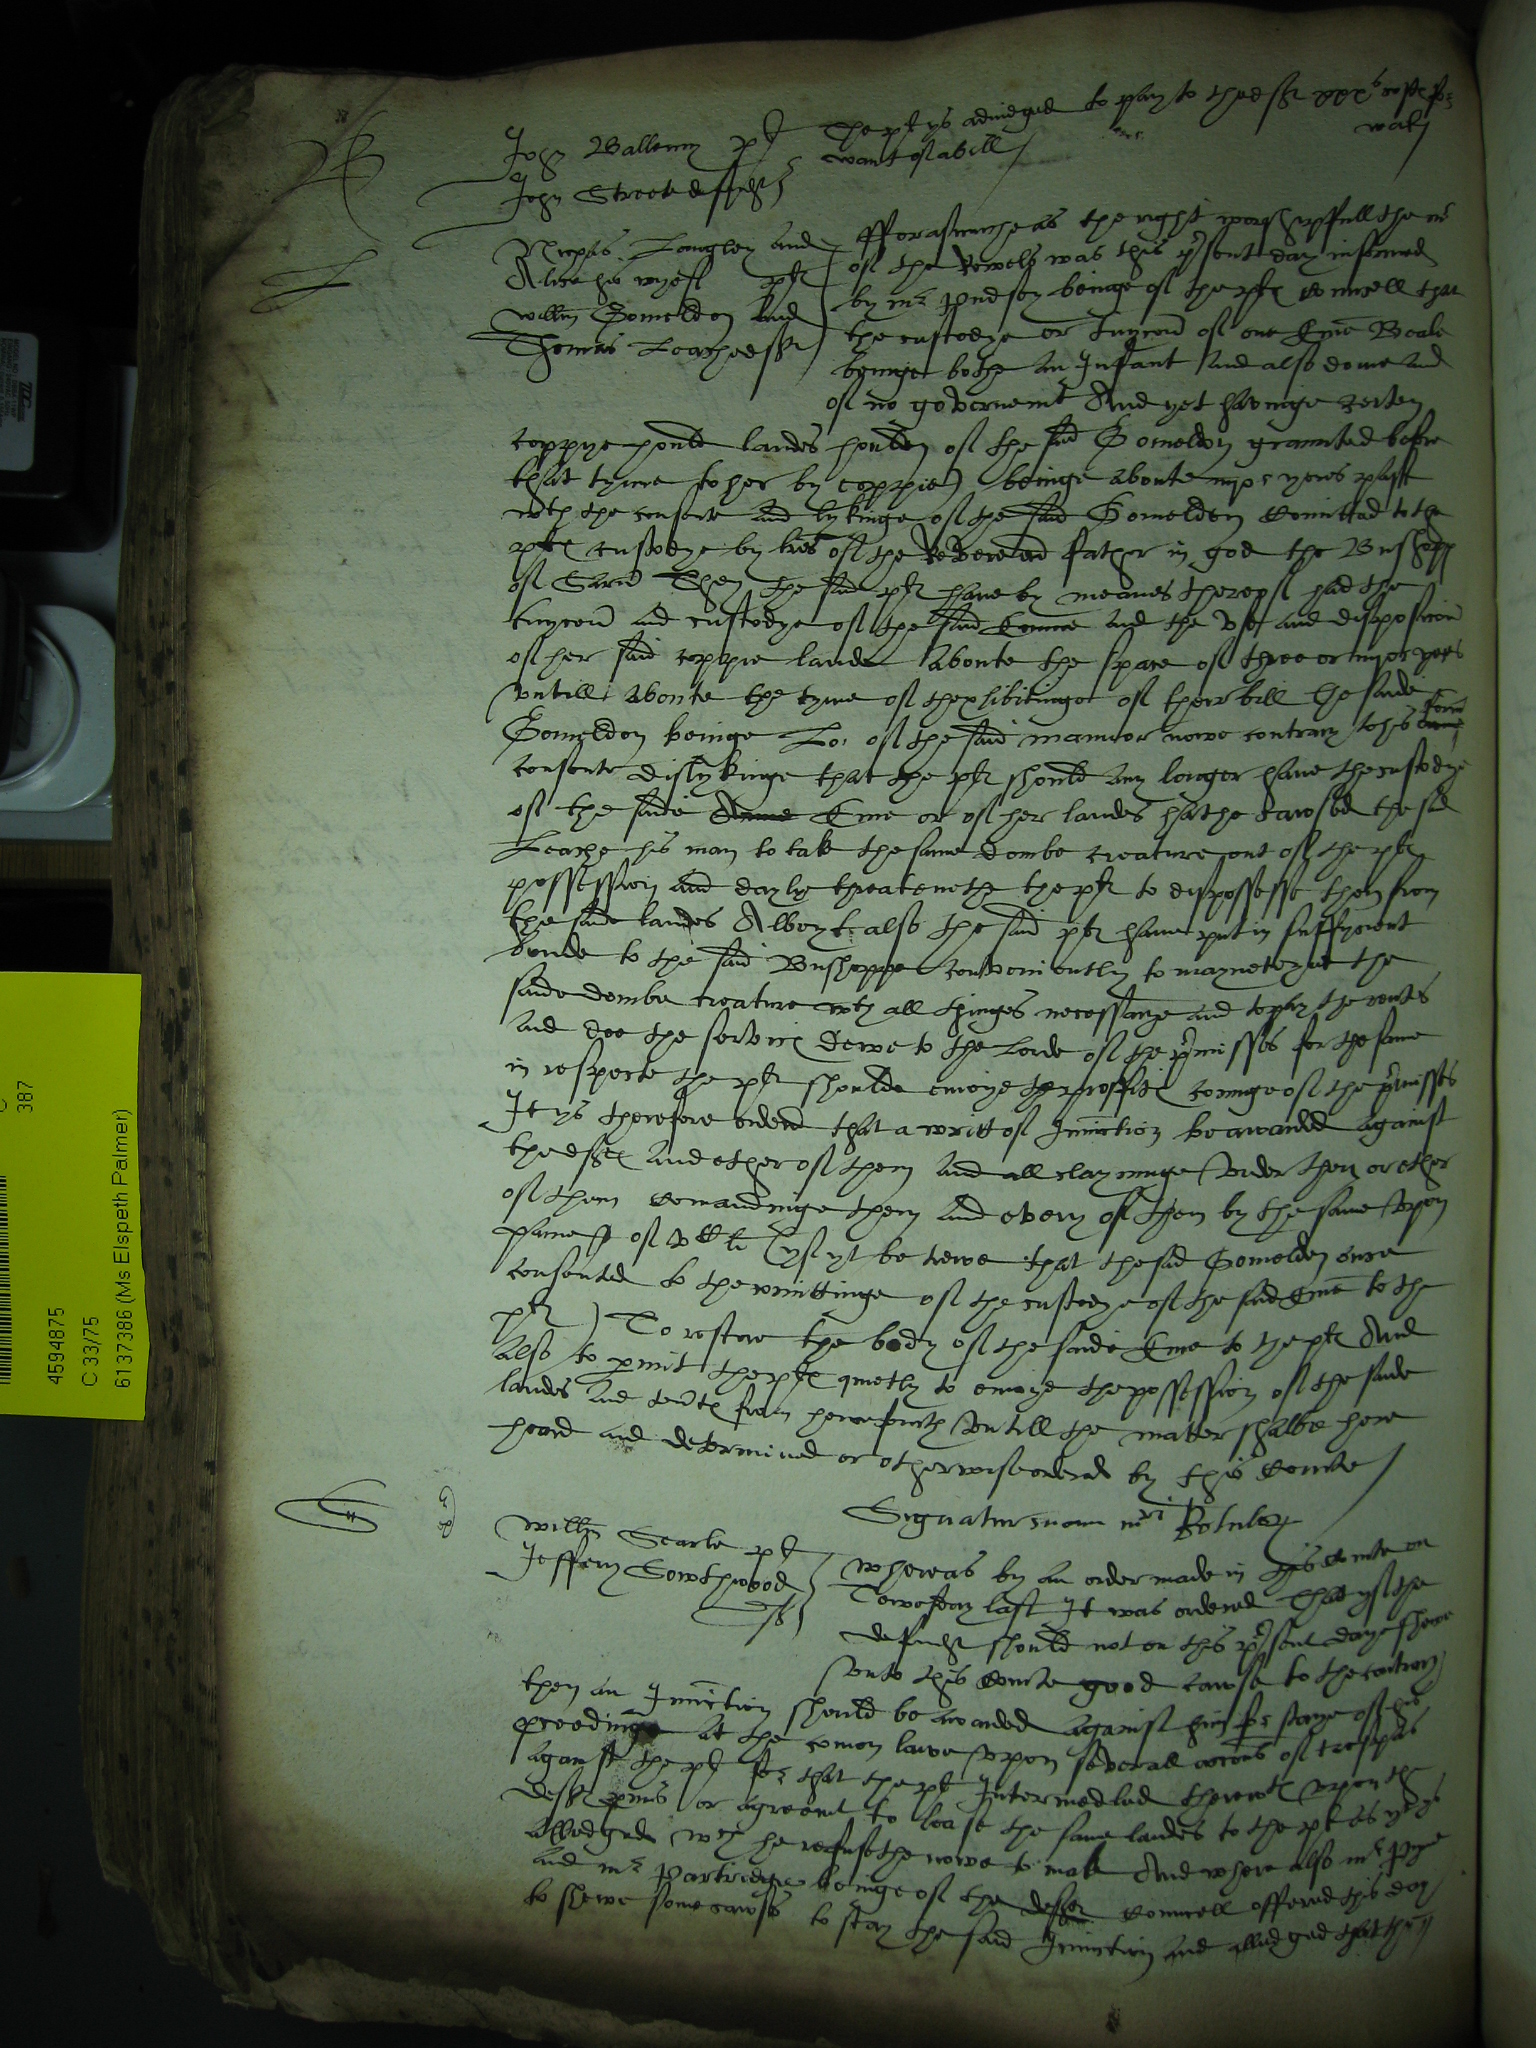 John Ballemy pl
John Streete defendt
The pl ys adiudged to pay to the deft xxxs costs for
want of a bill
walsh
Nichas Langley and
Alice his wyeff plt
Willm Gomeldon and
Thomas Leache deftes
Fforasmuche as the right worshipfull the mr
of the Rowels was this pnsent day informed
by mr being of the pltes Councell that
the custodye or tuycon of one Eme Beale
beinge bothe an Infant and also dome and
of no governemt And yet havinge certen
coppye hould landes houlden of the said Gomeldon graunted before
that tyme to her by coppie) beinge aboute yeres past
wth the consente and lykinge of the said Gomeldon Comitted to the
pltes custodye by lres of the Reverend father in god the Busshopp
of Sarum Then the said plt have by meanes therof had the
tuycon and custodye of the said Emme and the use and disposicon
of her said coppie lande aboute the space of three or yeres
untill aboute the tyme of thexhibitinge of their bill The saide
Gomeldon beinge Lo. of the said mannor nowe contrary to his form
consente dislykinge that the plt should any longer have the custodye
of the saide Anne Eme or of her landes hathe caused the said
Leache his man to take the same dombe creature out of the plt
possession and dayly threatenethe the plt to dispossesse them from
the saide landes Albeyt also the said plt have put in suffycient
bonde to the said Busshoppe conveniently to maynteyne the
saide dombe creature wth all thinges necessarye and to pay the rents
and doe the service dewe to the Lorde of the pmisses for the same
in respecte the plt shoulde enioye the proffits cominge of the pmisses
It ys therefore ordered that a writt of Iniunction be awarded against
the deftes and ether of them and all clayminge under them or ether
of them Comaundinge them and every of them by the same upon
payne of li (yf yt be trewe that the said Gomeldon once
consented to the comittinge of the custodye of the said Eme to the
plt) To restore the body of the saide Eme to the plt And
also to pmit the pltes quietly to enioye the possession of the saide
landes and tentes from hencefourth untill the matter shalbe here
heard and determined or otherwise ordered by this Courte
Signatur manu mri
Willm Searle pl
Jeffery Sowthwood
deft
Whereas by an order made in this Courte on
Tewesday last It was ordered That yf the
defendt should not on this psent daye shewe
unto this Courte good cawse to the contrary
then an Iniunction should be awarded against him for staye of his
pceedinge at the comon lawe upon severall accons of trespas
against the pl for that the pl Intermedled therewth upon the
deft pmis or agreemt to lease the same landes to the pl as yt ys
alledged wch he refusethe nowe to make And where also mr
and mr Partridge beinge of the deftes Councell offered this day
to shewe some cawse to stay the said Iniunction and alledged that the
4594875
C 33/75
6137386 (Ms Elspeth Palmer)
387